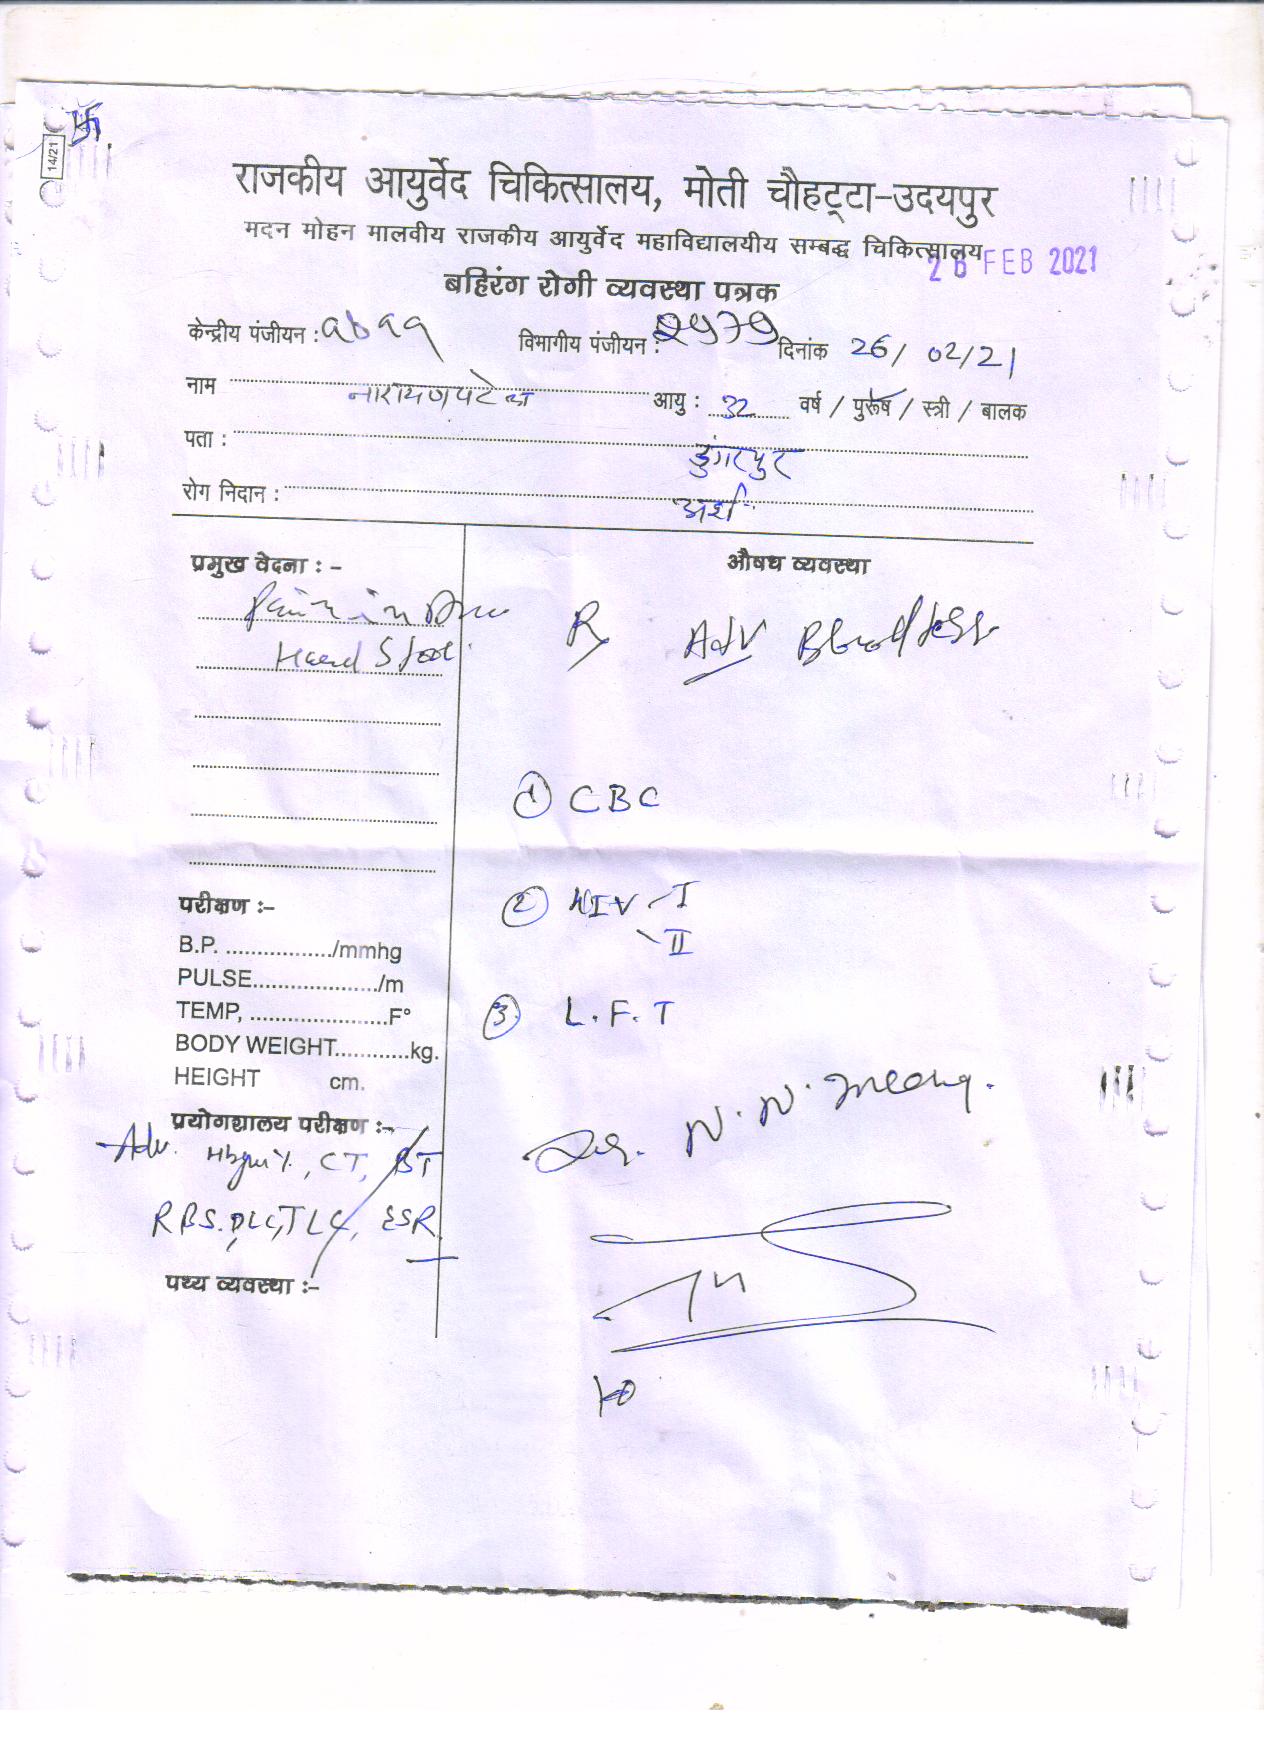 14/21
राजकीय आयुर्वेद चिकित्सालय, मोती चौहट्टा-उदयपुर
मदन मोहन मालवीय राजकीय आयुर्वेद महाविद्यालयीय सम्बद्ध चिकित्सालय
26 FEB 2021
बहिरंग रोगी व्यवस्था पत्रक
केन्द्रीय पंजीयन : विभागीय पंजीयन : दिनांक 26/02/21
नाम नारायण पटेल आयु : 32 वर्ष / पुरूष / स्त्री / बालक
पता : डुंगरपुर
रोग निदान : अर्श
प्रमुख वेदना : -
Pain in
Hard Stool
औषध व्यवस्था
Rx Adv Blood test
① CBC
② HIV - I
- II
③ L.F.T
परीक्षण :-
B.P. ................./mmhg
PULSE..................../m
TEMP, ......................F°
BODY WEIGHT............kg.
HEIGHT cm.
प्रयोगशालय परीक्षण :-
Adv. Hbgm%, CT, BT
RBS, DLC, TLC, ESR
पथ्य व्यवस्था :-
Dr. N. N.